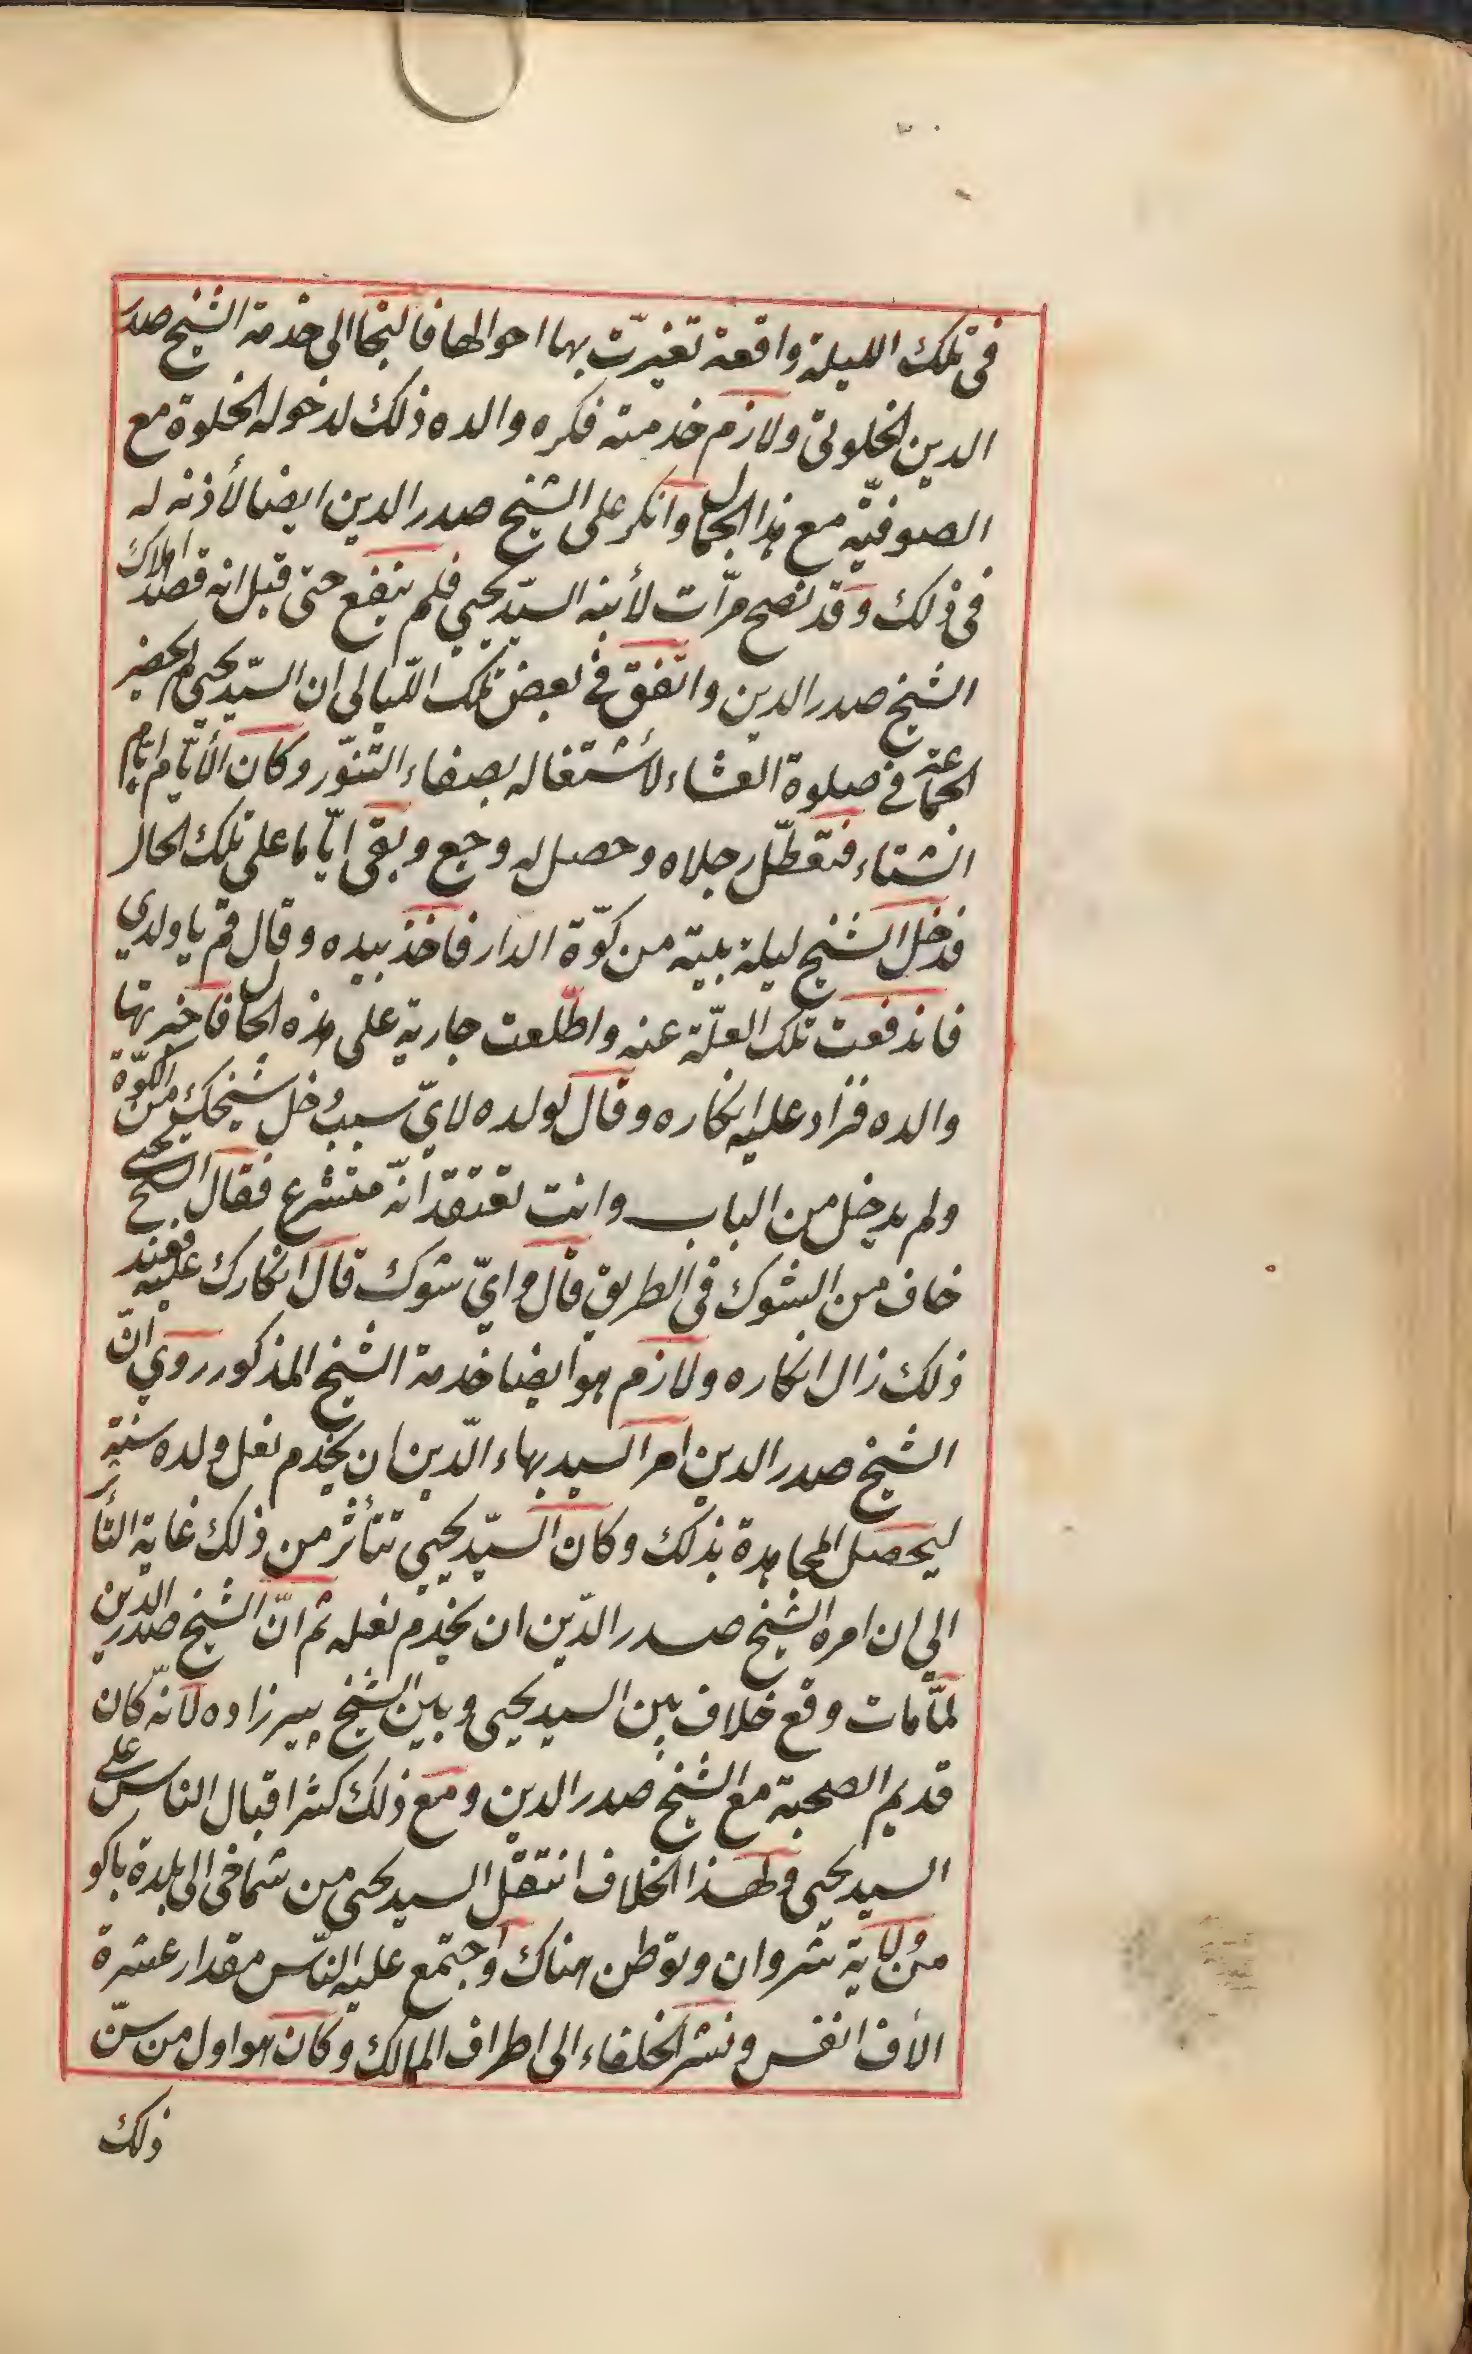 فى تلك الليلة واقعة تغيرّت بها احوالها فالتجا الى خدمة الشيخ صدر
الدين الخلوتى ولازم خدمته فكره والده ذلك لدخوله الخلوة مع
الصوفيّة مع هذا الجمال وانكر على الشيخ صدر الدين ايضا لأذنه له
فى ذلك وقد نصح مرّات لأبنه السيّد يحيى فلم ينفع حتى قيل انه قصد اهلاك
الشيخ صدر الدين واتفق فى بعض تلك اللّيالى ان السيّد يحيى لم يحضر
الجماعة فى صلوة العشاء لأشتغاله بصفاء التنوّر وكان الأيّام ايّام
الشتاء فتعطّل رجلاه وحصل له وجع وبقى ايّاما على تلك الحال
فدخل الشيخ ليلة بيته من كوّة الدار فاخذ بيده وقال قم يا ولدي
فاندفعت تلك العلّة عنه واطّلعت جارية على هذه الحال فاخبرتها
والده فزاد عليه انكاره وقال لولده لايّ سبب دخل شيخك من الكوّة
ولم يدخل من الباب وانت تعتقد انّه متشرع فقال السيّد يحيى
خاف من الشوك فى الطريق قال وايّ شوك قال انكارك عليه فعند
ذلك زال انكاره ولازم هو ايضا خدمة الشيخ المذكور روي انّ
الشيخ صدر الدين امر السيد بهاء الدّين ان يخدم نعل ولده سنة
ليحصل المجاهدة بذلك وكان السيّد يحيى تتأثر من ذلك غاية التأثر
الى ان امره الشيخ صدر الدّين ان يخدم نعله ثم انّ الشيخ صدر الدّين
لمّا مات وقع خلاف بين السيد يحيى وبين الشيخ پيرزاده لانّه كان
قديم الصحبة مع الشيخ صدر الدين ومع ذلك كثر اقبال الناس على
السيد يحيى ولهذا الخلاف انتقل السيد يحيى من شماخى الى بلدة باكو
من ولاية شروان وتوطن هناك واجتمع عليه النّاس مقدار عشرة
الاف انفس ونشر الخلفاء الى اطراف الممالك وكان هو اول من سنّ
ذلك